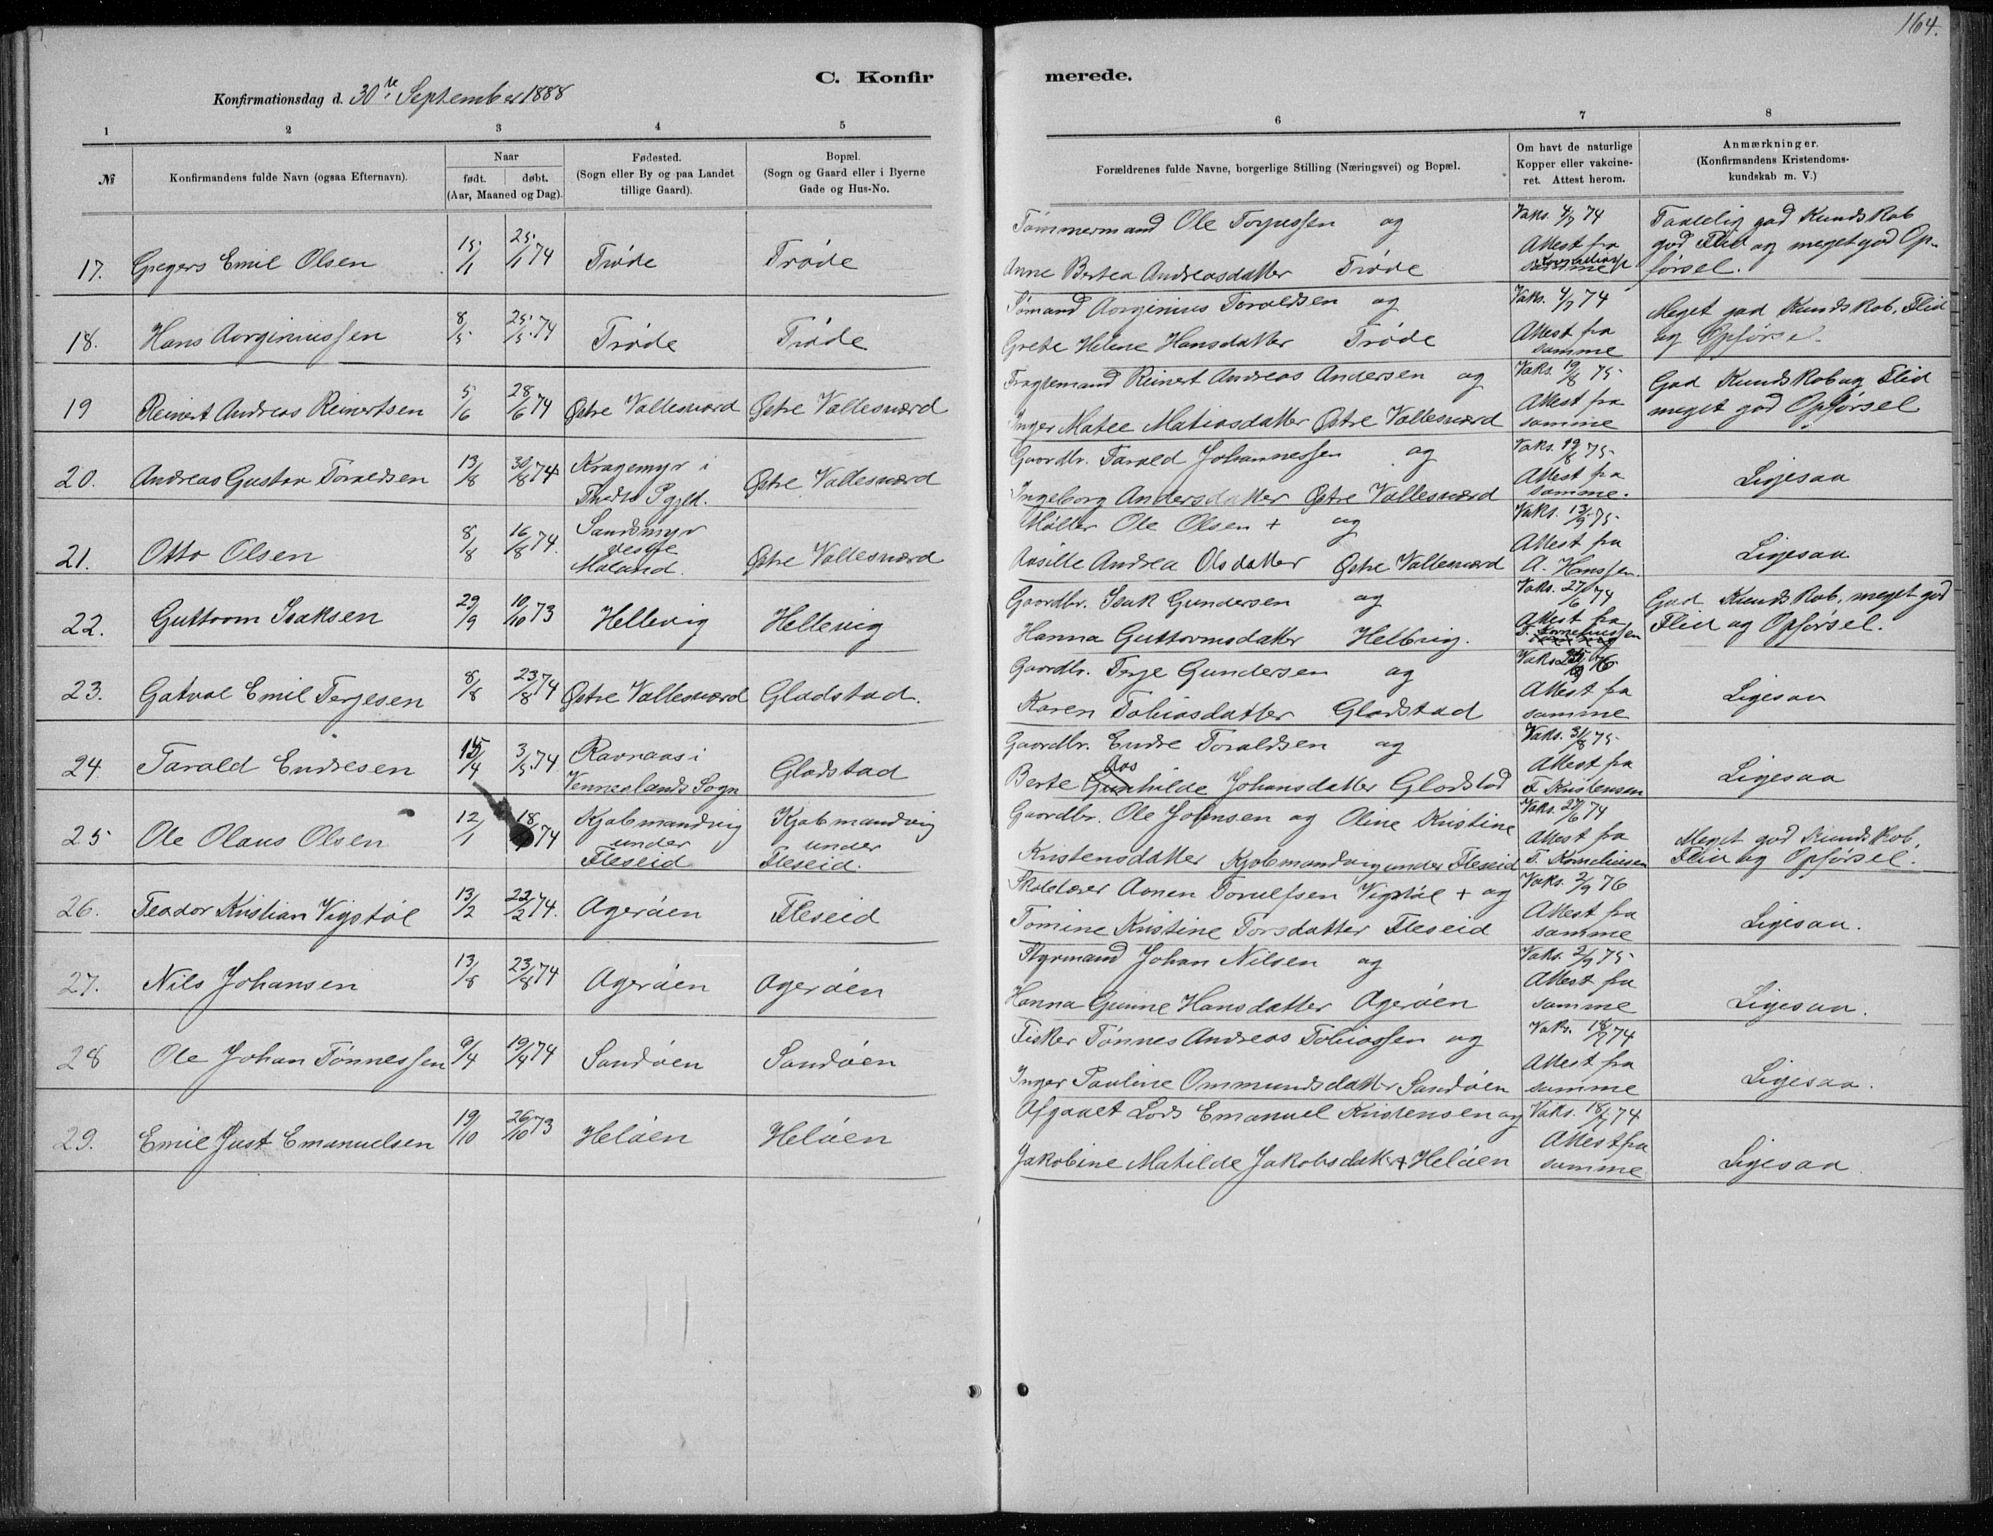 164.
C. Konfir
merede.
Konfirmationsdag d. 30te September 1888
1 2 3 4 5 6 7 8
№
Konfirmandens fulde Navn (ogsaa Efternavn).
Naar
født. døbt.
(Aar, Maaned og Dag).
Fødested.
(Sogn eller By og paa Landet
tillige Gaard).
Bopæl.
(Sogn og Gaard eller i Byerne
Gade og Hus-No.
Forældrenes fulde Navne, borgerlige Stilling (Næringsvei) og Bopæl.
Om havt de naturlige
Kopper eller vakcine-
ret. Attest herom.
Anmærkninger.
(Konfirmandens Kristendoms-
kundskab m. V.)
17. Gregers Emil Olsen 15/1 25/1 74 Trøde Trøde
Tømmermand Ole Torjussen og
Anne Bertea Andreasdatter Trøde
Vaks. 4/7 74
Attest fra
Taalelig god Kundskab
god Flid og meget god Op-
førsel.
18. Hans Aorginiussen 8/5 25/5 74 Trøde Trøde
Sømand Aorginius Taraldsen og
Grete Helene Hansdatter Trøde
Vaks. 4/7 74
Attest fra
samme
Meget god Kundskab, Flid
og Opførsel.
19 Reinert Andreas Reinertsen 5/6 28/6 74 Østre Vallesværd Østre Vallesværd
Fragtemand Reinert Andreas Andersen og
Inger Matee Matiasdatter Østre Vallesværd
Vaks. 19/8 75
Attest fra
samme
God Kundskab og Flid
meget god Opførsel
20. Andreas Gustav Taraldsen 13/8 30/8 74 Kragemyr i
Pgjld. Østre Vallesværd
Gaardbr. Tarald Johannessen og
Ingeborg Andersdatter Østre Vallesværd
Vaks. 19/8 75
Attest fra
samme.
Ligesaa
21. Otto Olsen 8/8 16/8 74. Sandsmyr
vestre
Moland. Østre Vallesværd
Møller Ole Olsen + og
Andrea Olsdatter Østre Vallesværd
Vaks. 13/9 75
Attest fra
A. Hanssen.
Ligesaa
22. Guttorm Isaksen 29/9 19/10 73 Hellevig Hellevig
Gaardbr. Isak Gundersen og
Hanna Guttormsdatter Hellevig.
Vaks. 27/6 74
Attest fra
God Kundskab, meget god
Flid og Opførsel.
23. Gatval Emil Terjesen 8/8 23/8 74 Østre Vallesværd Gladstad.
Gaardbr. Terje Gundersen og
Karen Tobiasdatter Gladstad
Attest fra
samme
Ligesaa
24. Tarald Endresen 15/4 3/5 74 Ravnaas i
Venneslands Sogn Gladstad
Gaardbr. Endre Taraldsen og
Berte Aas Johansdatter Gladstad
Vaks. 31/8 75
Attest fra
F. Kristensen
Ligesaa
25 Ole Olaus Olsen 12/1 18/ 74 Kjøbmandvig
under
Fleseid Kjøbmandvig
under
Fleseid.
Gaardbr. Ole Johnsen og Oline Kristine
Kristensdatter Kjøbmandvig under Fleseid
Vaks. 27/6 74
Attest fra
T. Korneliusen
Meget god Kundskab,
Flid og Opførsel.
26. Teodor Kristian Vigstøl 13/2 22/2 74. Agerøen Fleseid
Skolelærer Aanen Torulfsen Vigstøl + og
Tomine Kristine Torsdatter Fleseid
Vaks. 2/9 76
Attest fra
samme
Ligesaa.
27. Nils Johansen 13/8 23/8 74 Agerøen Agerøen
Styrmand Johan Nilsen og
Hanna Gunne Hansdatter Agerøen
Vaks. 2/9 75
Attest fra
samme
Ligesaa.
28 Ole Johan Tønnessen 9/4 19/4 74 Sandøen Sandøen
Fisker Tønnes Andreas Tobiassen og
Inger Pauline Ommundsdatter Sandøen
Vaks. 18/7 74
Attest fra
samme
Ligesaa.
29. Emil Just Emanuelsen 19/10 26/10 73 Heløen Heløen
Afgaaet Lods Emanuel Kristensen og
Jakobine Matilde Jakobsdatter + Heløen
Vaks. 18/7 74
Attest fra
samme
Ligesaa.